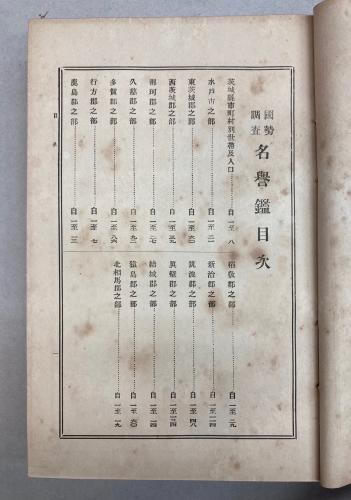 國勢調査 名譽鑑目次
茨城縣市町村別世帶及人口……自一至八
水戸市之部……自一至二
東茨城郡之部……自一至
西茨城郡之部……自一至
那珂郡之部……自一至七
久慈郡之部……自一至
多賀郡之部……自一至
行方郡之部……自一至七
鹿島郡之部……自一至三
稻敷郡之部……自一至二九
新治郡之部……自一至二四
筑波郡之部……自一至四八
眞壁郡之部……自一至三四
結城郡之部……自一至一四
猿島郡之部……自一至
北相馬郡之部……自一至一九
目次
一